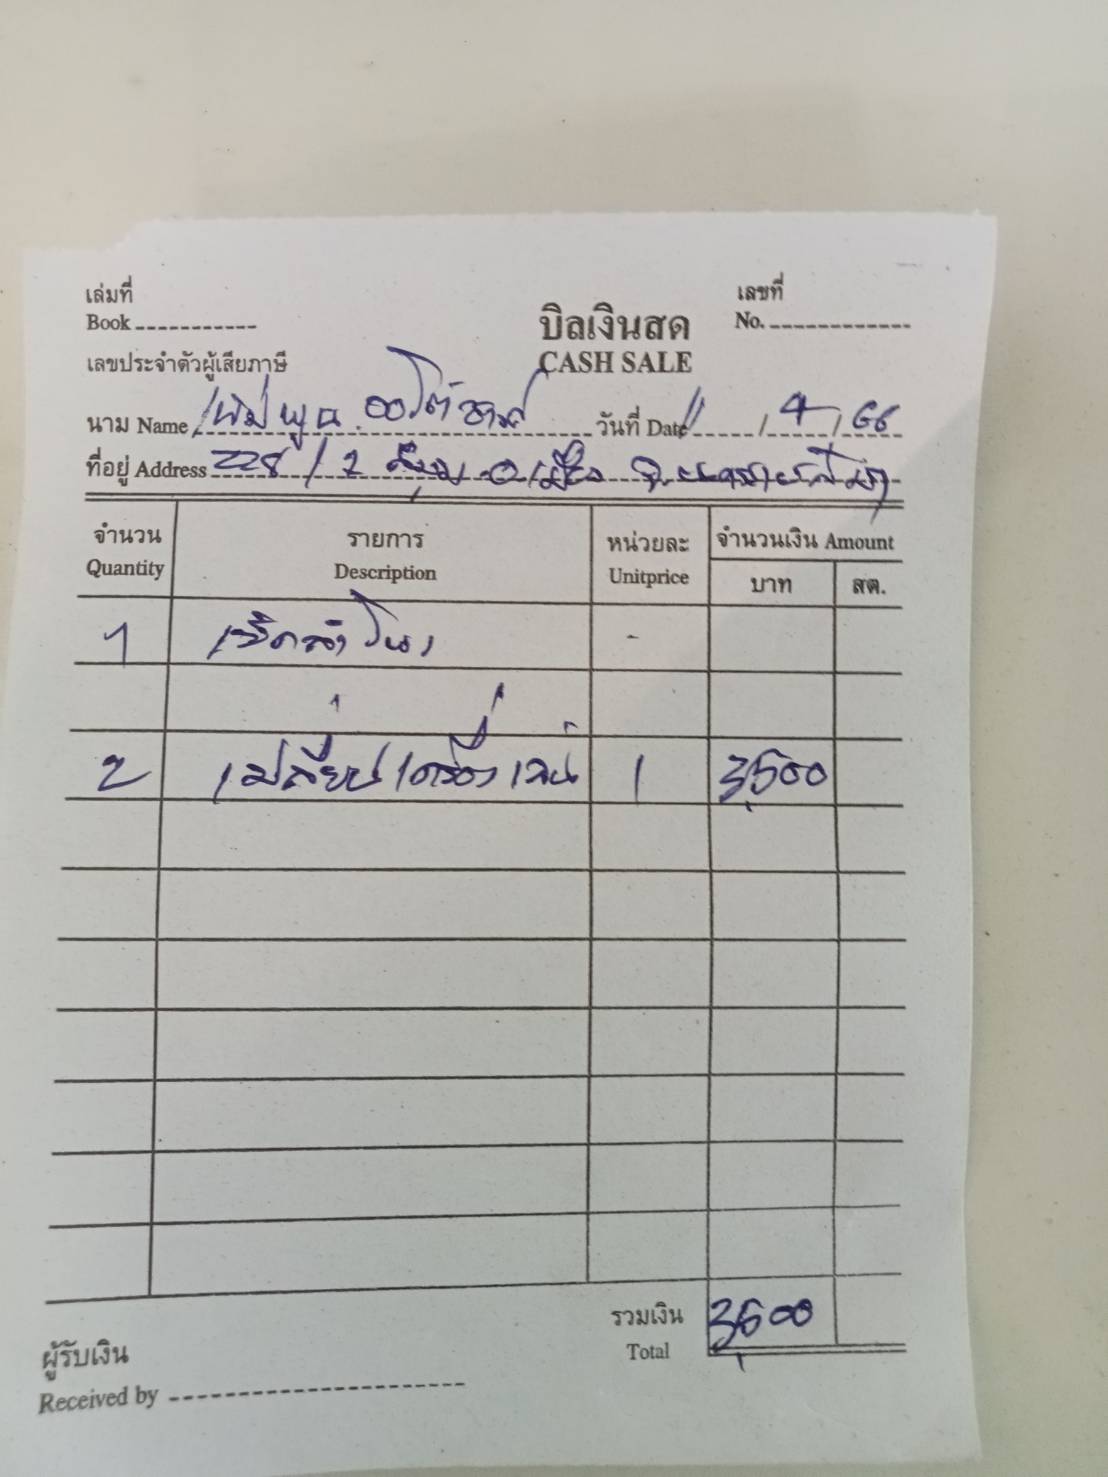 เล่มที่ เลขที่
Book บิลเงินสด No.
เลขประจำตัวผู้เสียภาษี CASH SALE
นาม Name เพิ่มพูน ออโต้ซาวด์ วันที่ Date 11 / 4 / 66
ที่อยู่ Address 228/2 อ.เมือง จ.นครราชสีมา
จำนวน รายการ หน่วยละ จำนวนเงิน Amount
Quantity Description Unitprice บาท สต.
1 เช็คลำโพง -
2 เปลี่ยนเครื่องเล่น 1 3,500
รวมเงิน 3,500
Total
ผู้รับเงิน
Received by